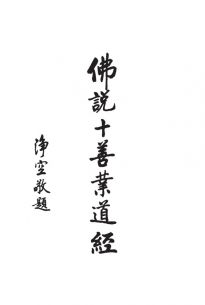 佛説十善業道經
淨空敬題